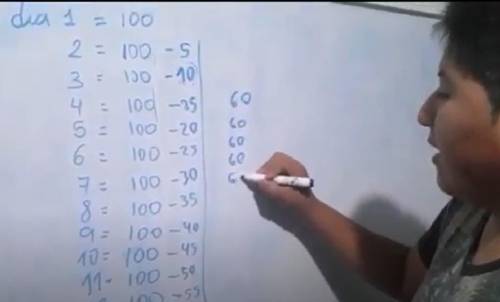 dia 1 = 100
2 = 100 - 5
3 = 100 - 10
4 = 100 - 15
5 = 100 - 20
6 = 100 - 25
7 = 100 - 30
8 = 100 - 35
9 = 100 - 40
10 = 100 - 45
11 - 100 - 50
= 100 - 55
60
60
60
60
6